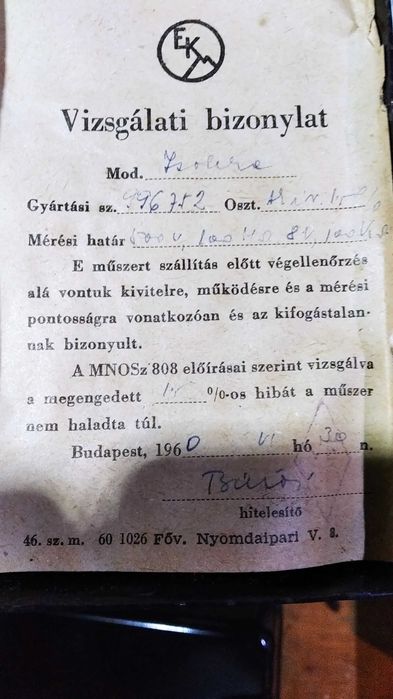 EK
Vizsgálati bizonylat
Mod.
Gyártási sz. 996752 Oszt.
Mérési határ 500 V, 100
E műszert szállítás előtt végellenőrzés
alá vontuk kivitelre, működésre és a mérési
pontosságra vonatkozóan és az kifogástalan-
nak bizonyult.
A MNOSz 808 előírásai szerint vizsgálva
a megengedett %-os hibát a műszer
nem haladta túl.
Budapest, 1960 VI hó 30 n.
hitelesítő
46. sz. m. 60 1026 Főv. Nyomdaipari V. 8.